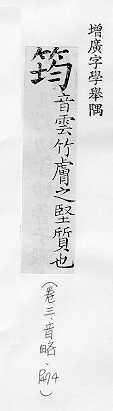 增廣字學舉隅
筠音雲竹膚之堅質也
(卷三.音略.